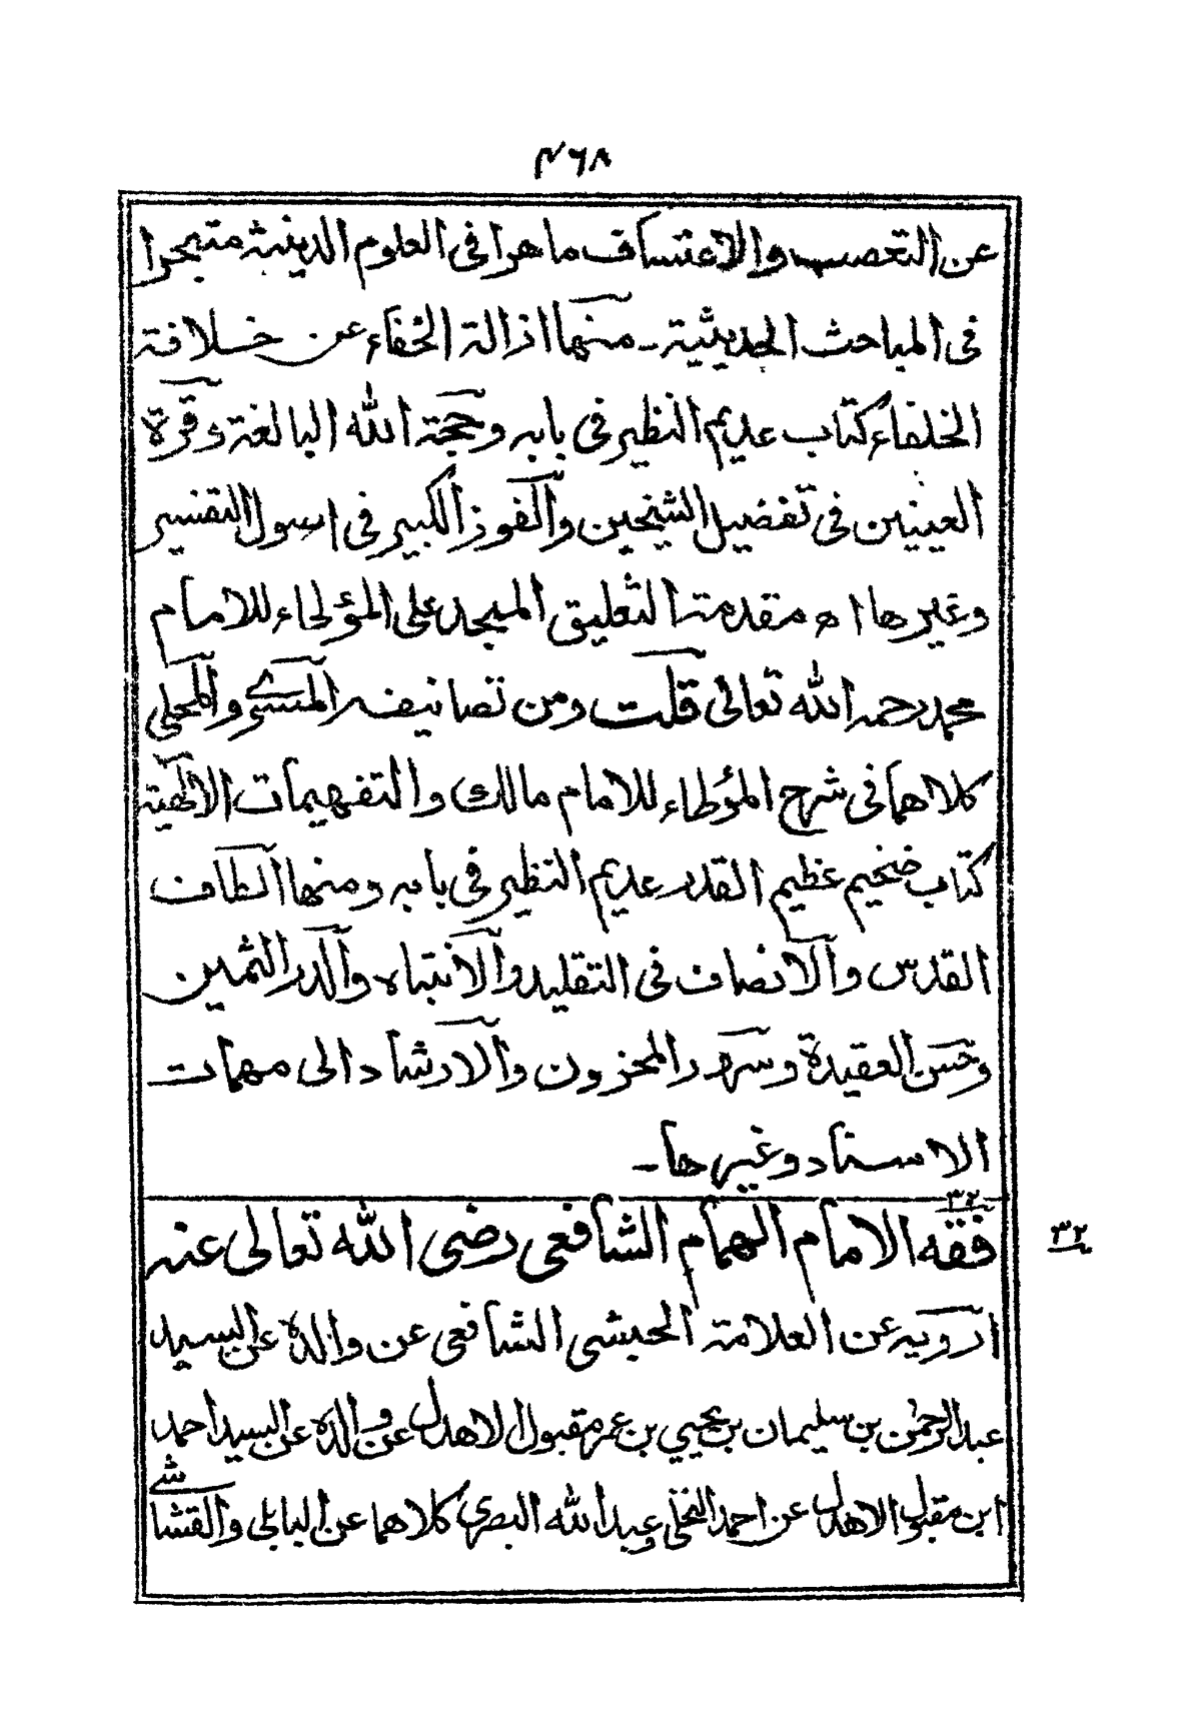 ٤٦٨
عن التعصب والاعتساف ماهرا فى العلوم الدينية متبحرا
فى المباحث الحديثية ـ منها ازالة الخفاء عن خلافة
الخلفاء كتاب عديم النظير فى بابه وحجة الله البالغة وقرة
العينين فى تفضيل الشيخين والفوز الكبير فى اصول التفسير
وغيرها اه مقدمة التعليق الممجد على المؤطاء للامام
محمد رحمه الله تعالى قلت ومن تصانيفه المسوى والمحلى
كلاهما فى شرح المؤطاء للامام مالك والتفهيمات الالهية
كتاب ضخيم عظيم القدر عديم النظير فى بابه ومنها الطاف
القدس والانصاف فى التقليد والانتباه والدر الثمين
وحسن العقيدة وسرور المحزون والارشاد الى مهمات
الاسناد وغيرها ـ
٣٢
فقه الامام الهمام الشافعى رضى الله تعالى عنه
٣٢
ارويه عن العلامة الحبشى الشافعى عن والده عن السيد
عبد الرحمن بن سليمان بن يحيي بن عمر مقبول الاهدل عن والده عن السيد احمد
ابن مقبول الاهدل عن احمد النخلى وعبد الله البصرى كلاهما عن البابلى والقشاشى